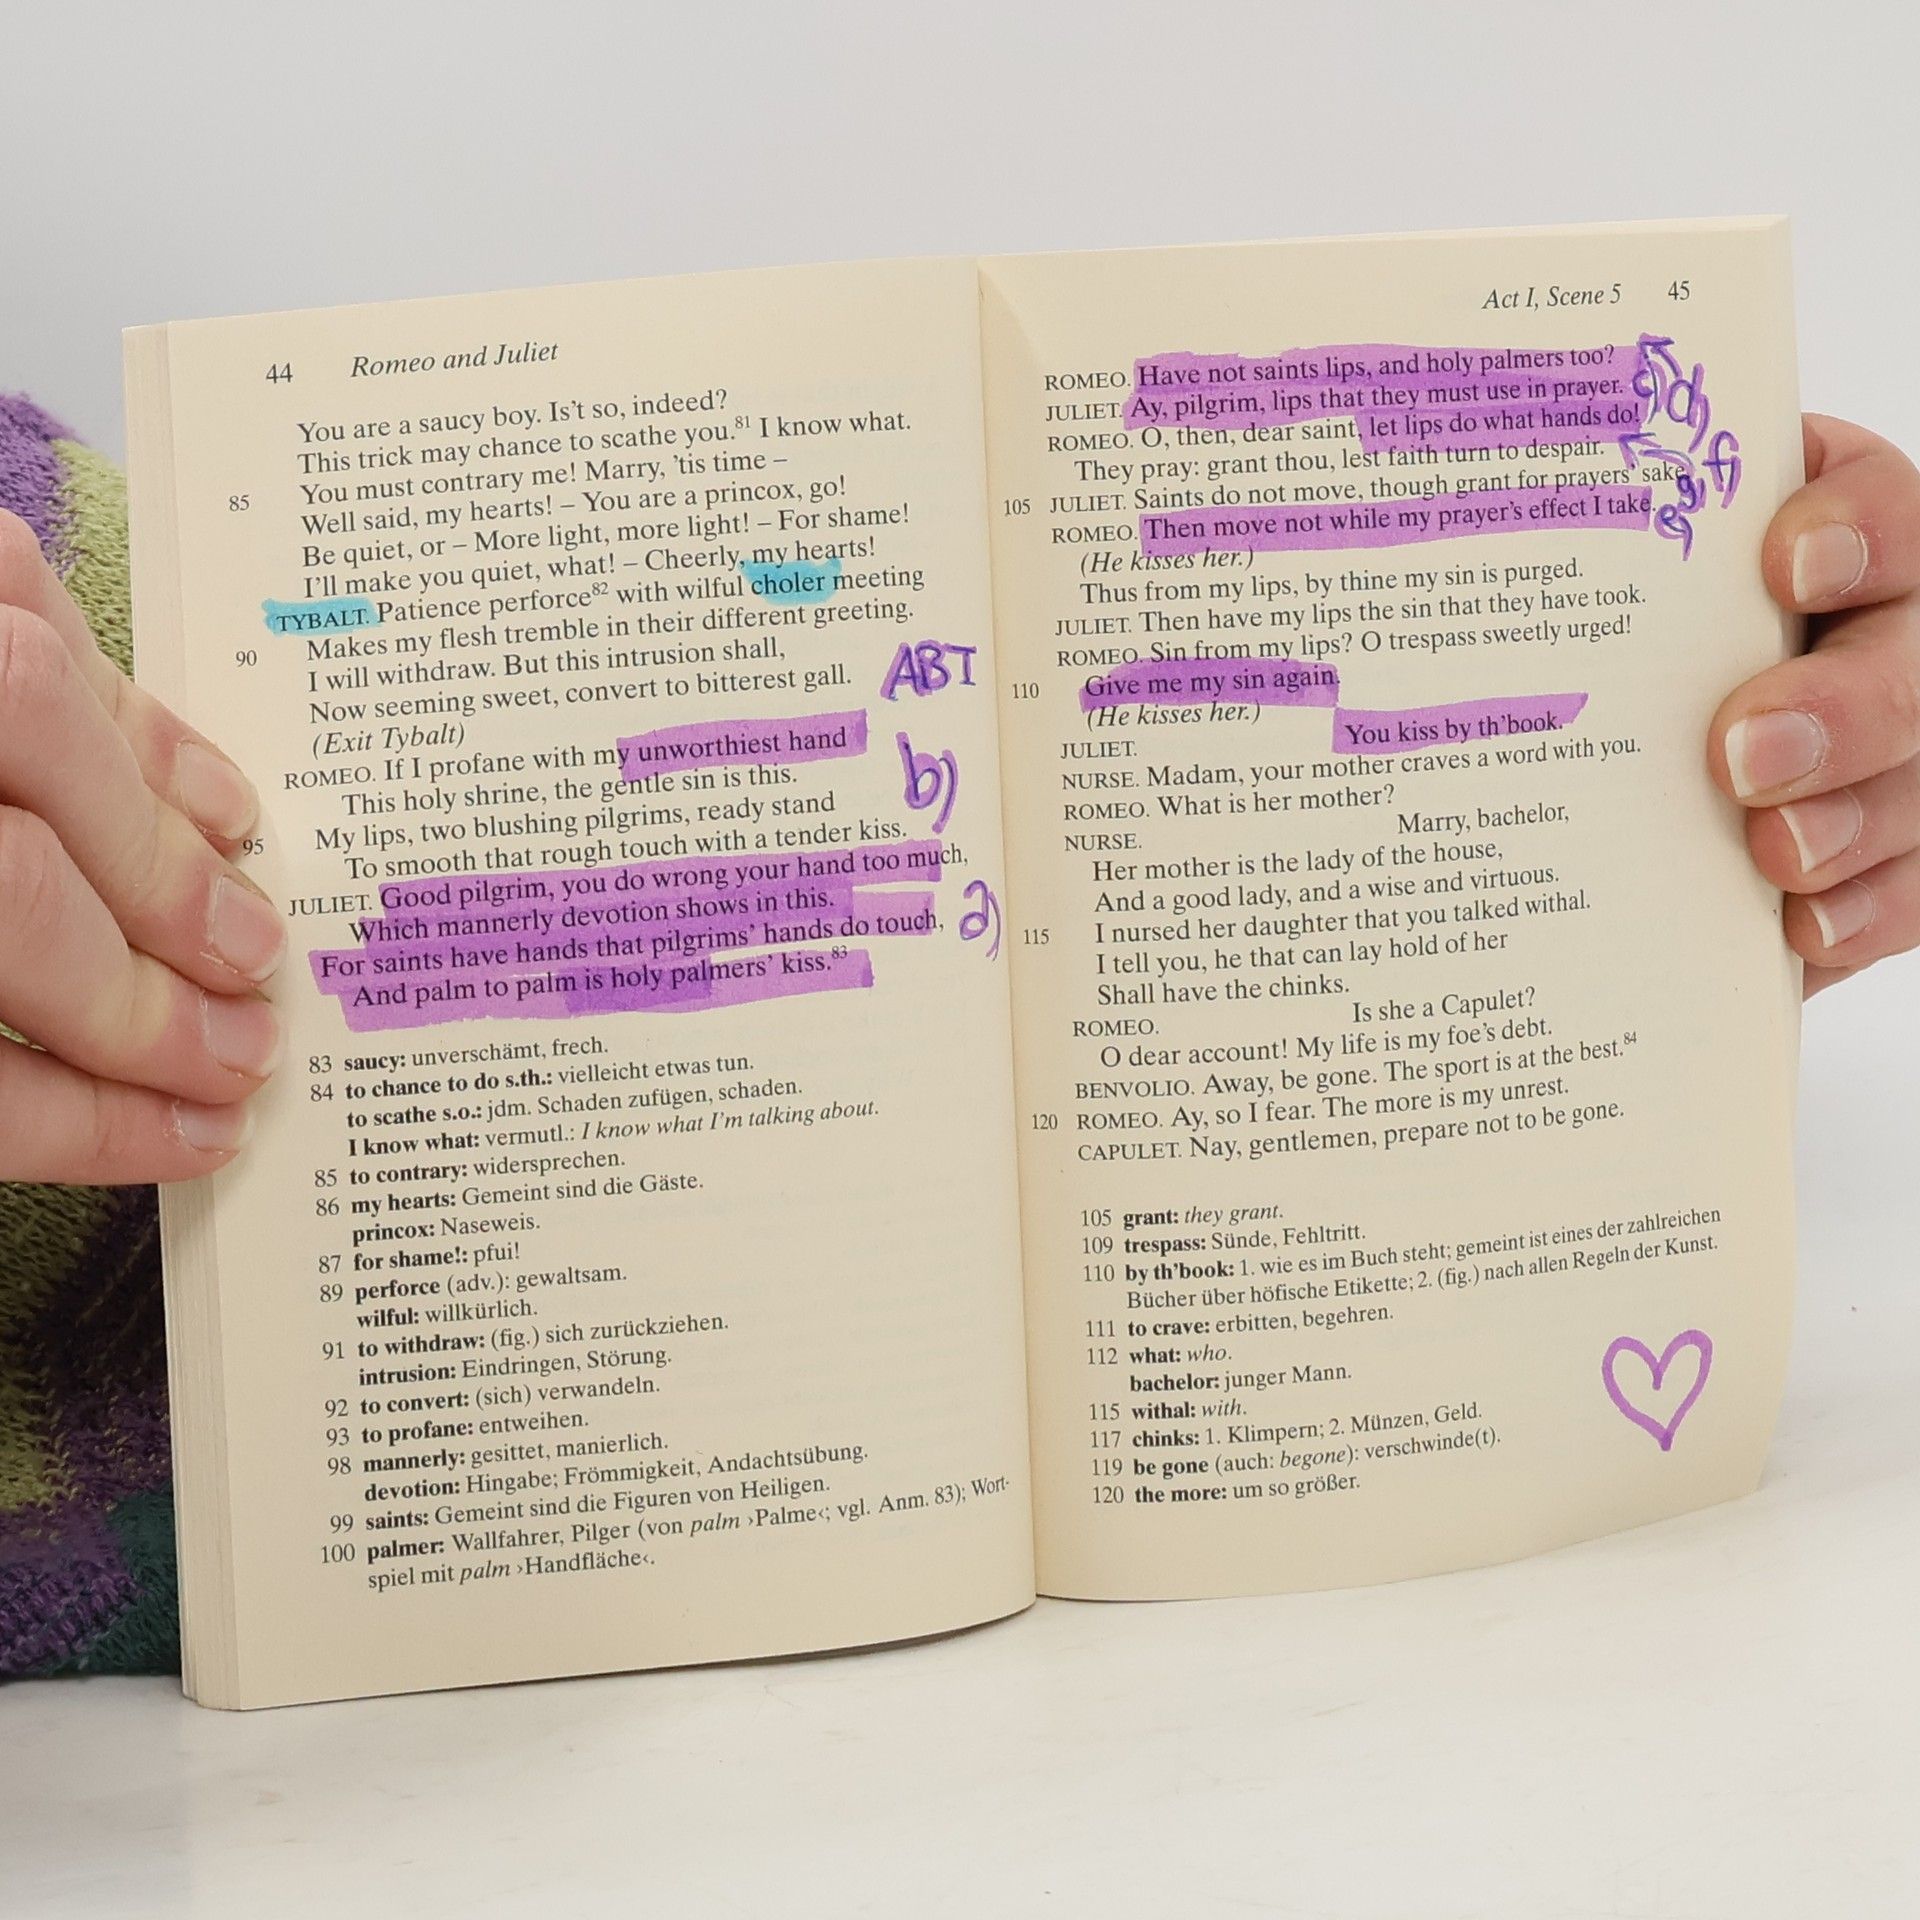 44 Romeo and Juliet
You are a saucy boy. Is't so, indeed?
This trick may chance to scathe you.81 I know what.
85 You must contrary me! Marry, 'tis time –
Well said, my hearts! – You are a princox, go!
Be quiet, or – More light, more light! – For shame!
I'll make you quiet, what! – Cheerly, my hearts!
TYBALT. Patience perforce82 with wilful choler meeting
90 Makes my flesh tremble in their different greeting.
I will withdraw. But this intrusion shall,
Now seeming sweet, convert to bitterest gall.
ABI
(Exit Tybalt)
ROMEO. If I profane with my unworthiest hand
This holy shrine, the gentle sin is this.
b)
95 My lips, two blushing pilgrims, ready stand
To smooth that rough touch with a tender kiss.
JULIET. Good pilgrim, you do wrong your hand too much,
Which mannerly devotion shows in this.
a)
For saints have hands that pilgrims' hands do touch,
And palm to palm is holy palmers' kiss.83
83 saucy: unverschämt, frech.
84 to chance to do s.th.: vielleicht etwas tun.
to scathe s.o.: jdm. Schaden zufügen, schaden.
I know what: vermutl.: I know what I'm talking about.
85 to contrary: widersprechen.
86 my hearts: Gemeint sind die Gäste.
princox: Naseweis.
87 for shame!: pfui!
89 perforce (adv.): gewaltsam.
wilful: willkürlich.
91 to withdraw: (fig.) sich zurückziehen.
intrusion: Eindringen, Störung.
92 to convert: (sich) verwandeln.
93 to profane: entweihen.
98 mannerly: gesittet, manierlich.
devotion: Hingabe; Frömmigkeit, Andachtsübung.
99 saints: Gemeint sind die Figuren von Heiligen.
100 palmer: Wallfahrer, Pilger (von palm ›Palme‹; vgl. Anm. 83); Wort-
spiel mit palm ›Handfläche‹.
Act I, Scene 5 45
ROMEO. Have not saints lips, and holy palmers too?
JULIET. Ay, pilgrim, lips that they must use in prayer. c) d)
ROMEO. O, then, dear saint, let lips do what hands do!
They pray: grant thou, lest faith turn to despair. f)
105 JULIET. Saints do not move, though grant for prayers' sake. g)
ROMEO. Then move not while my prayer's effect I take. e)
(He kisses her.)
Thus from my lips, by thine my sin is purged.
JULIET. Then have my lips the sin that they have took.
ROMEO. Sin from my lips? O trespass sweetly urged!
110 Give me my sin again.
(He kisses her.)
JULIET. You kiss by th'book.
NURSE. Madam, your mother craves a word with you.
ROMEO. What is her mother?
NURSE. Marry, bachelor,
Her mother is the lady of the house,
And a good lady, and a wise and virtuous.
115 I nursed her daughter that you talked withal.
I tell you, he that can lay hold of her
Shall have the chinks.
ROMEO. Is she a Capulet?
O dear account! My life is my foe's debt.
BENVOLIO. Away, be gone. The sport is at the best.84
120 ROMEO. Ay, so I fear. The more is my unrest.
CAPULET. Nay, gentlemen, prepare not to be gone.
105 grant: they grant.
109 trespass: Sünde, Fehltritt.
110 by th'book: 1. wie es im Buch steht; gemeint ist eines der zahlreichen
Bücher über höfische Etikette; 2. (fig.) nach allen Regeln der Kunst.
111 to crave: erbitten, begehren.
112 what: who.
bachelor: junger Mann.
115 withal: with.
117 chinks: 1. Klimpern; 2. Münzen, Geld.
119 be gone (auch: begone): verschwinde(t).
120 the more: um so größer.